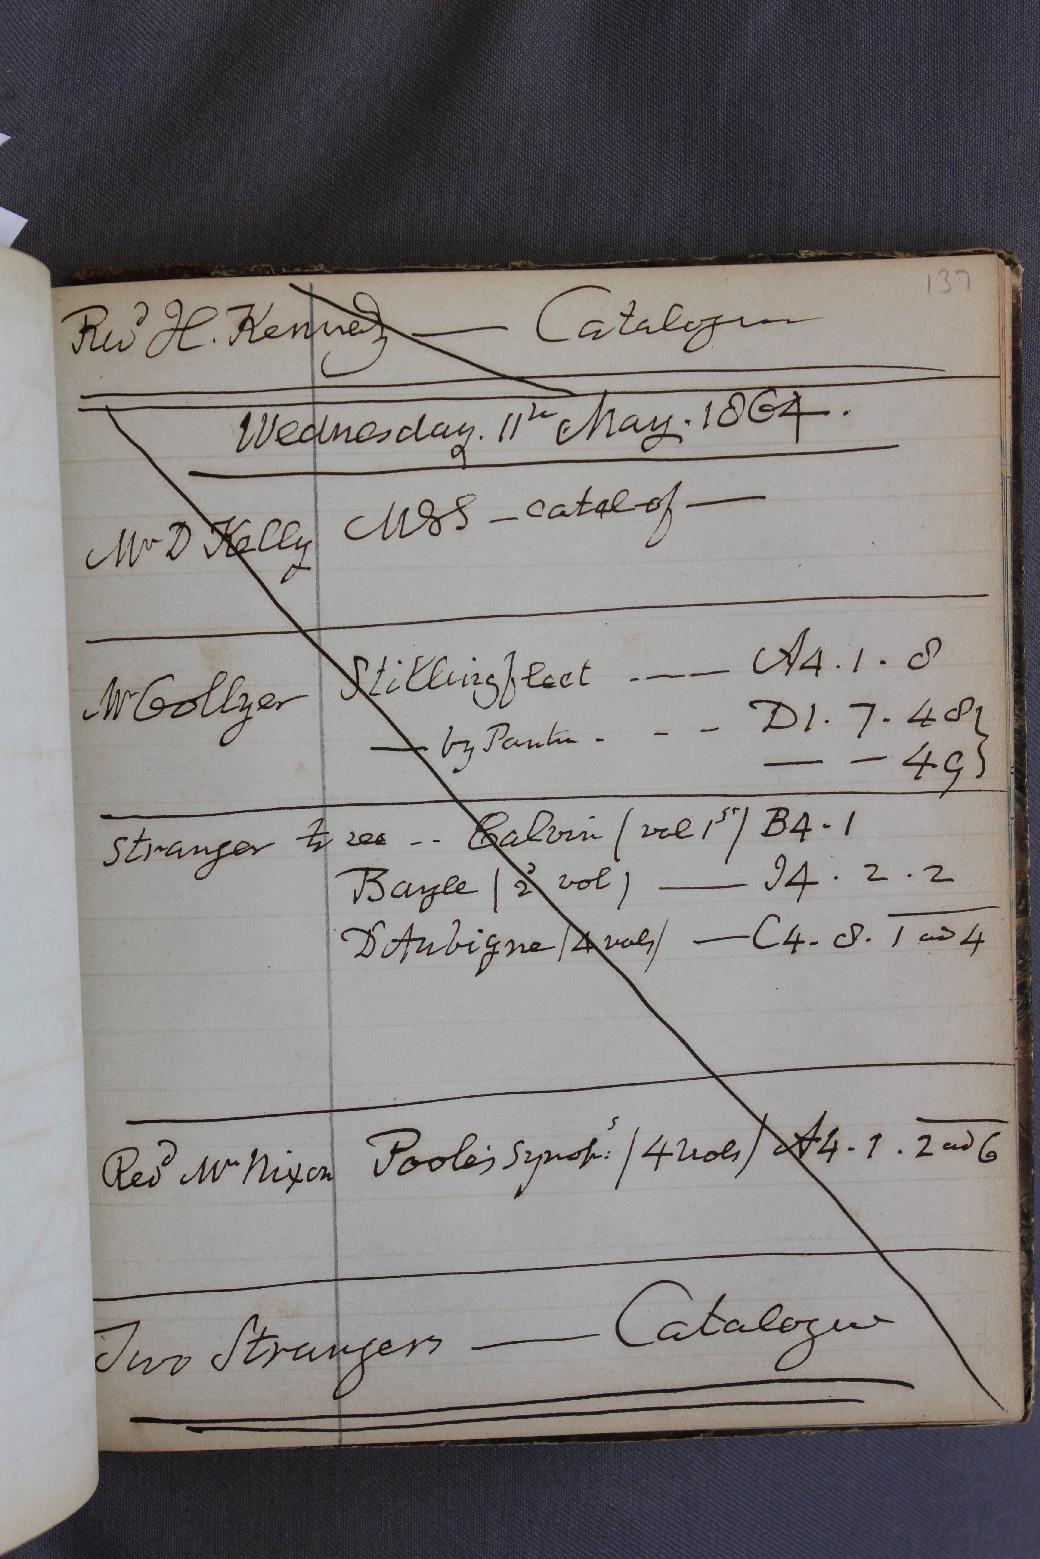 137
Revd H. Kennedy — Catalogue
Wednesday. 11th May. 1864.
Mr D Kelly MSS - catal of —
Mr Collyer Stillingfleet --- A4. 1. 8
— by - - - D1. 7. 48}
— — 49}
Stranger to see -- Calvin (vol 1st) B4. 1
Bayle (2d vol) — I4. 2. 2
D'Aubigne (4 vols) — C4. 8. 1 ad 4
Revd Mr Nixon Poole's Synops: (4 vols) A4. 1. 2 ad 6
Two Strangers — Catalogue